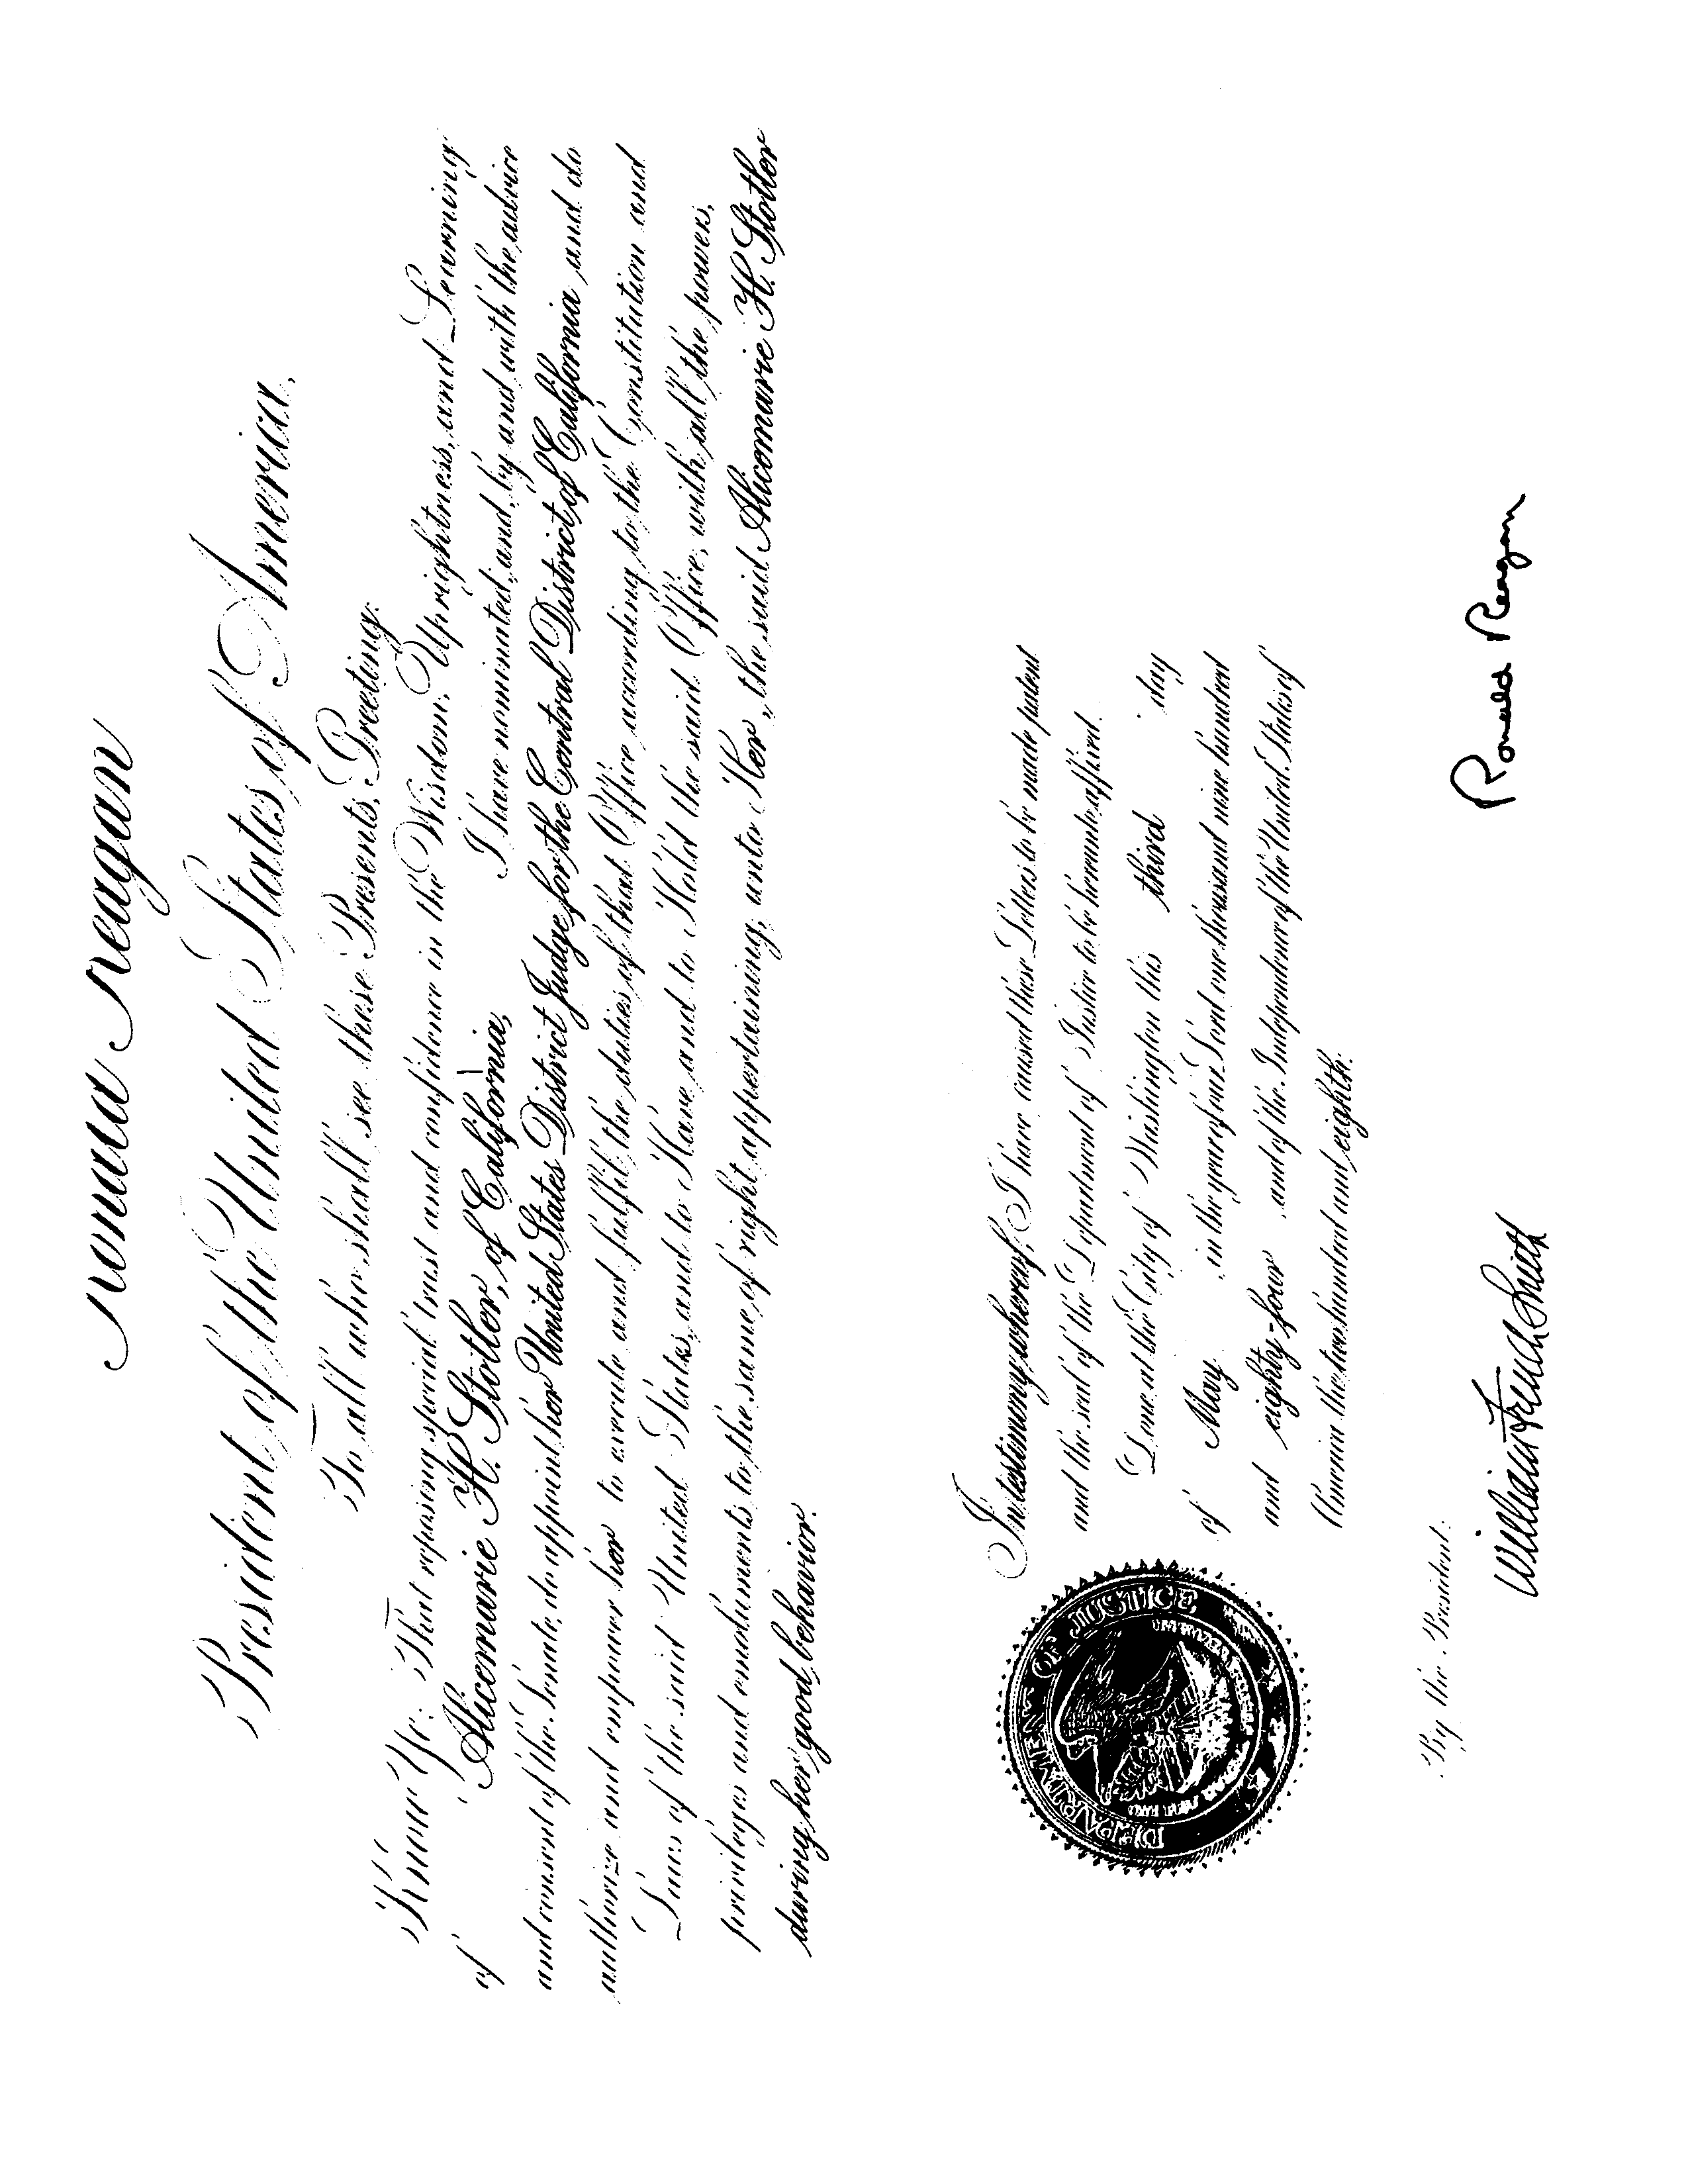 Ronald Reagan
President of the United States of America,
To all who shall see these Presents, Greeting:
Know Ye; That reposing special trust and confidence in the Wisdom, Uprightness, and Learning
of Alicemarie H. Stotler, of California, I have nominated, and, by and with the advice
and consent of the Senate, do appoint her United States District Judge for the Central District of California, and do
authorize and empower her to execute and fulfil the duties of that Office according to the Constitution and
Laws of the said United States, and to Have and to Hold the said Office, with all the powers,
privileges and emoluments to the same of right appertaining, unto Her, the said Alicemarie H. Stotler
during her good behavior.
In testimony whereof, I have caused these Letters to be made patent
and the seal of the Department of Justice to be hereunto affixed.
Done at the City of Washington this third day
of May, in the year of our Lord one thousand nine hundred
and eighty-four, and of the Independence of the United States of
America the two hundred and eighth.
DEPARTMENT OF JUSTICE
Ronald Reagan
By the President:
William French Smith